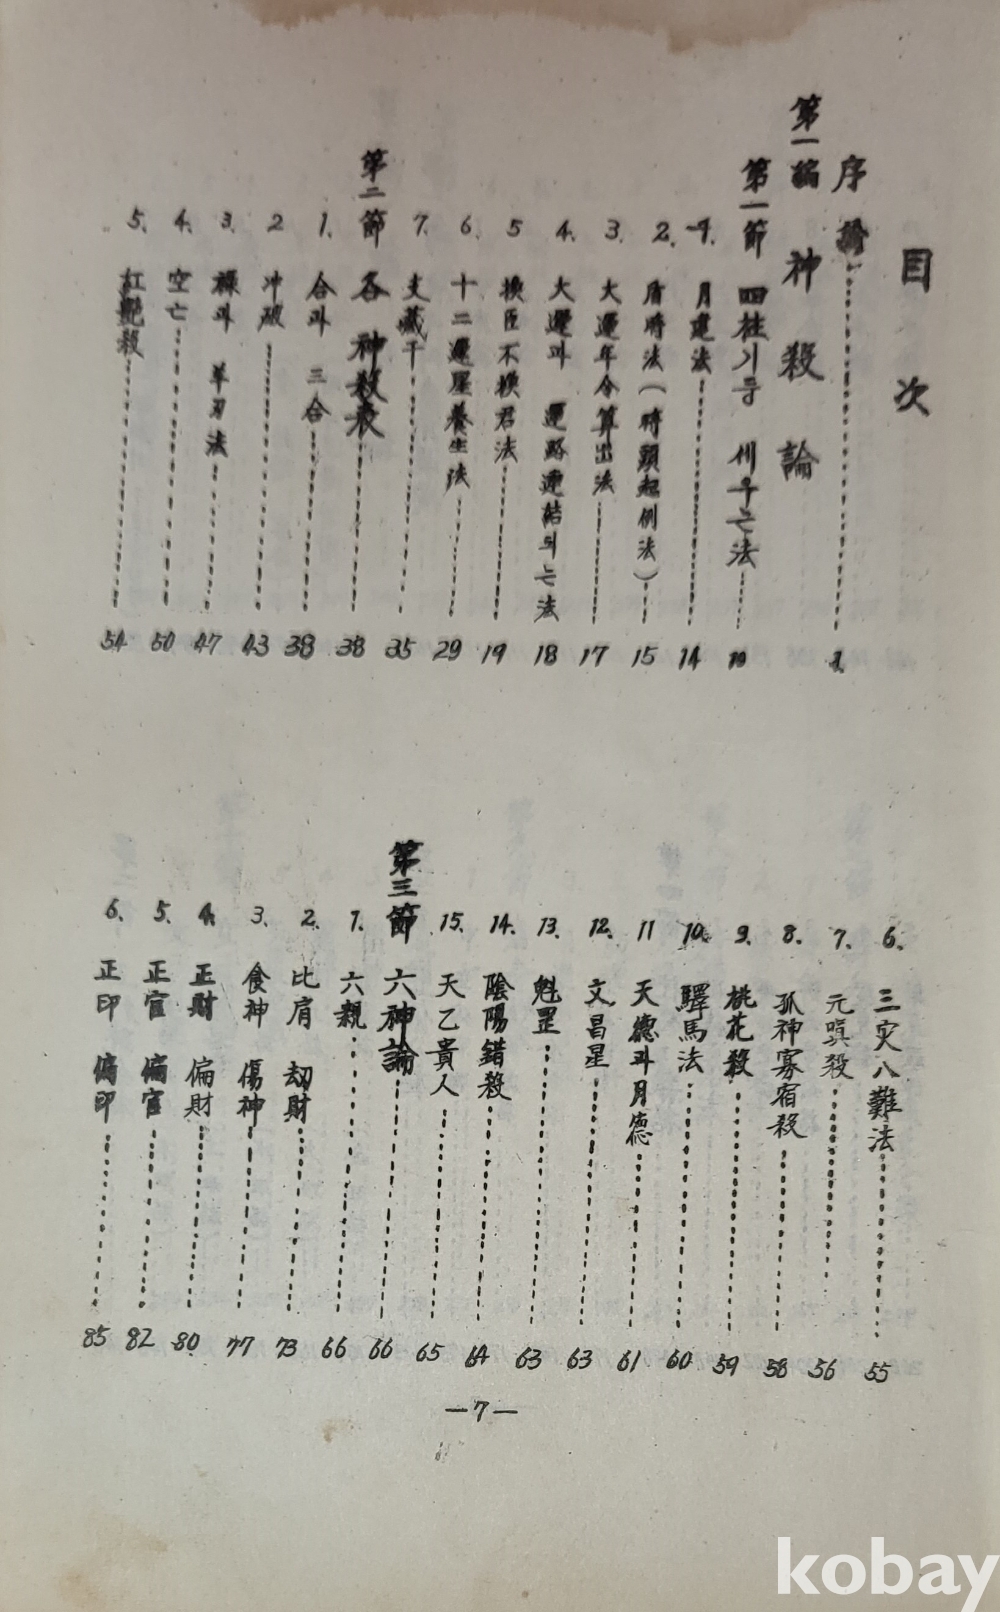 目次
序論 1
第一編 神殺論
第一節 四柱기둥 세우는法 10
1. 月建法 14
2. 盾時法(時頭起例法) 15
3. 大運年令算出法 17
4. 大運과 運路連結되는法 18
5 換臣不換君法 19
6. 十二運胞養生法 29
7. 支藏干 35
第二節 各神殺表 38
1. 合과 三合 38
2 冲破 43
3. 祿과 羊刃法 47
4. 空亡 50
5. 紅艶殺 54
6. 三灾八難法 55
7. 元嗔殺 56
8. 孤神寡宿殺 58
9. 桃花殺 59
10. 驛馬法 60
11 天德과月德 61
12. 文昌星 63
13. 魁罡 63
14. 陰陽錯殺 64
15. 天乙貴人 65
第三節 六神論 66
1. 六親 66
2. 比肩 刼財 73
3. 食神 傷神 77
4. 正財 偏財 80
5. 正官 偏官 82
6. 正印 偏印 85
—7—
kobay